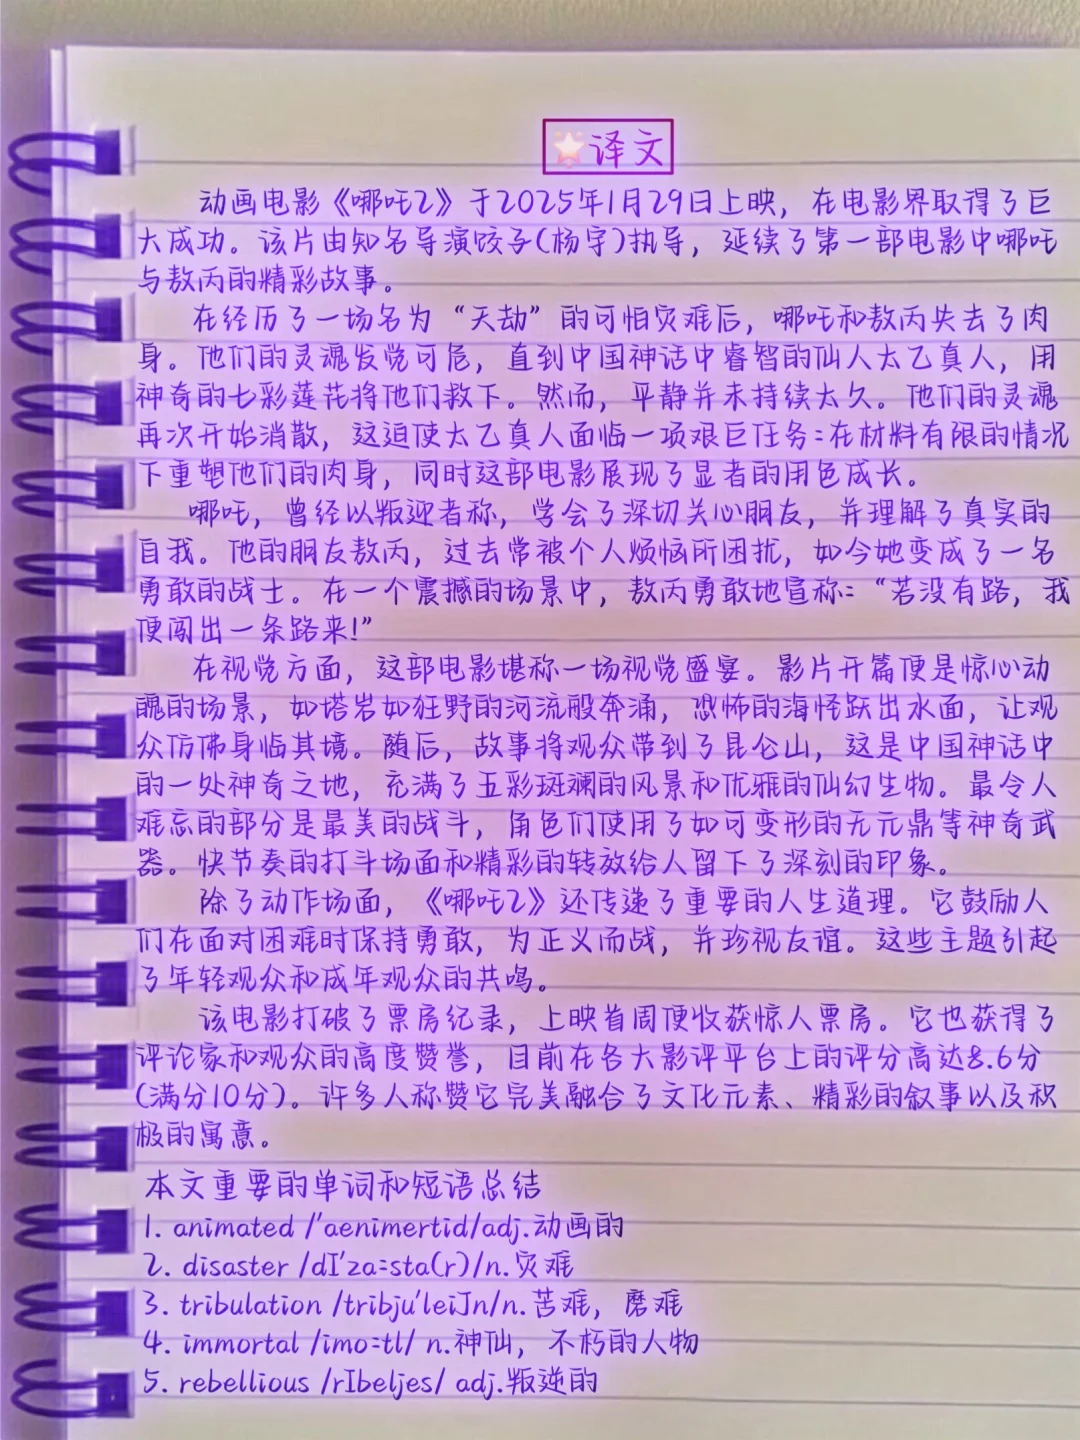 译文
动画电影《哪吒2》于2025年1月29日上映，在电影界取得了巨
大成功。该片由知名导演饺子(杨宇)执导，延续了第一部电影中哪吒
与敖丙的精彩故事。
在经历了一场名为“天劫”的可怕灾难后，哪吒和敖丙失去了肉
身。他们的灵魂岌岌可危，直到中国神话中睿智的仙人太乙真人，用
神奇的七彩莲花将他们救下。然而，平静并未持续太久。他们的灵魂
再次开始消散，这迫使太乙真人面临一项艰巨任务:在材料有限的情况
下重塑他们的肉身，同时这部电影展现了显著的角色成长。
哪吒，曾经以叛逆者称，学会了深切关心朋友，并理解了真实的
自我。他的朋友敖丙，过去常被个人烦恼所困扰，如今她变成了一名
勇敢的战士。在一个震撼的场景中，敖丙勇敢地宣称:“若没有路，我
便闯出一条路来!”
在视觉方面，这部电影堪称一场视觉盛宴。影片开篇便是惊心动
魄的场景，如塔岩如狂野的河流般奔涌，恐怖的海怪跃出水面，让观
众仿佛身临其境。随后，故事将观众带到了昆仑山，这是中国神话中
的一处神奇之地，充满了五彩斑斓的风景和优雅的仙幻生物。最令人
难忘的部分是最美的战斗，角色们使用了如可变形的无元鼎等神奇武
器。快节奏的打斗场面和精彩的转放给人留下了深刻的印象。
除了动作场面，《哪吒2》还传递了重要的人生道理。它鼓励人
们在面对困难时保持勇敢，为正义而战，并珍视友谊。这些主题引起
了年轻观众和成年观众的共鸣。
该电影打破了票房纪录，上映首周便收获惊人票房。它也获得了
评论家和观众的高度赞誉，目前在各大影评平台上的评分高达8.6分
(满分10分)。许多人称赞它完美融合了文化元素、精彩的叙事以及积
极的寓意。
本文重要的单词和短语总结
1. animated /'aenimertid/adj.动画的
2. disaster /dI'za:sta(r)/n.灾难
3. tribulation /tribju'leiJn/n.苦难，磨难
4. immortal /imo:tl/ n.神仙，不朽的人物
5. rebellious /rIbeljes/ adj.叛逆的